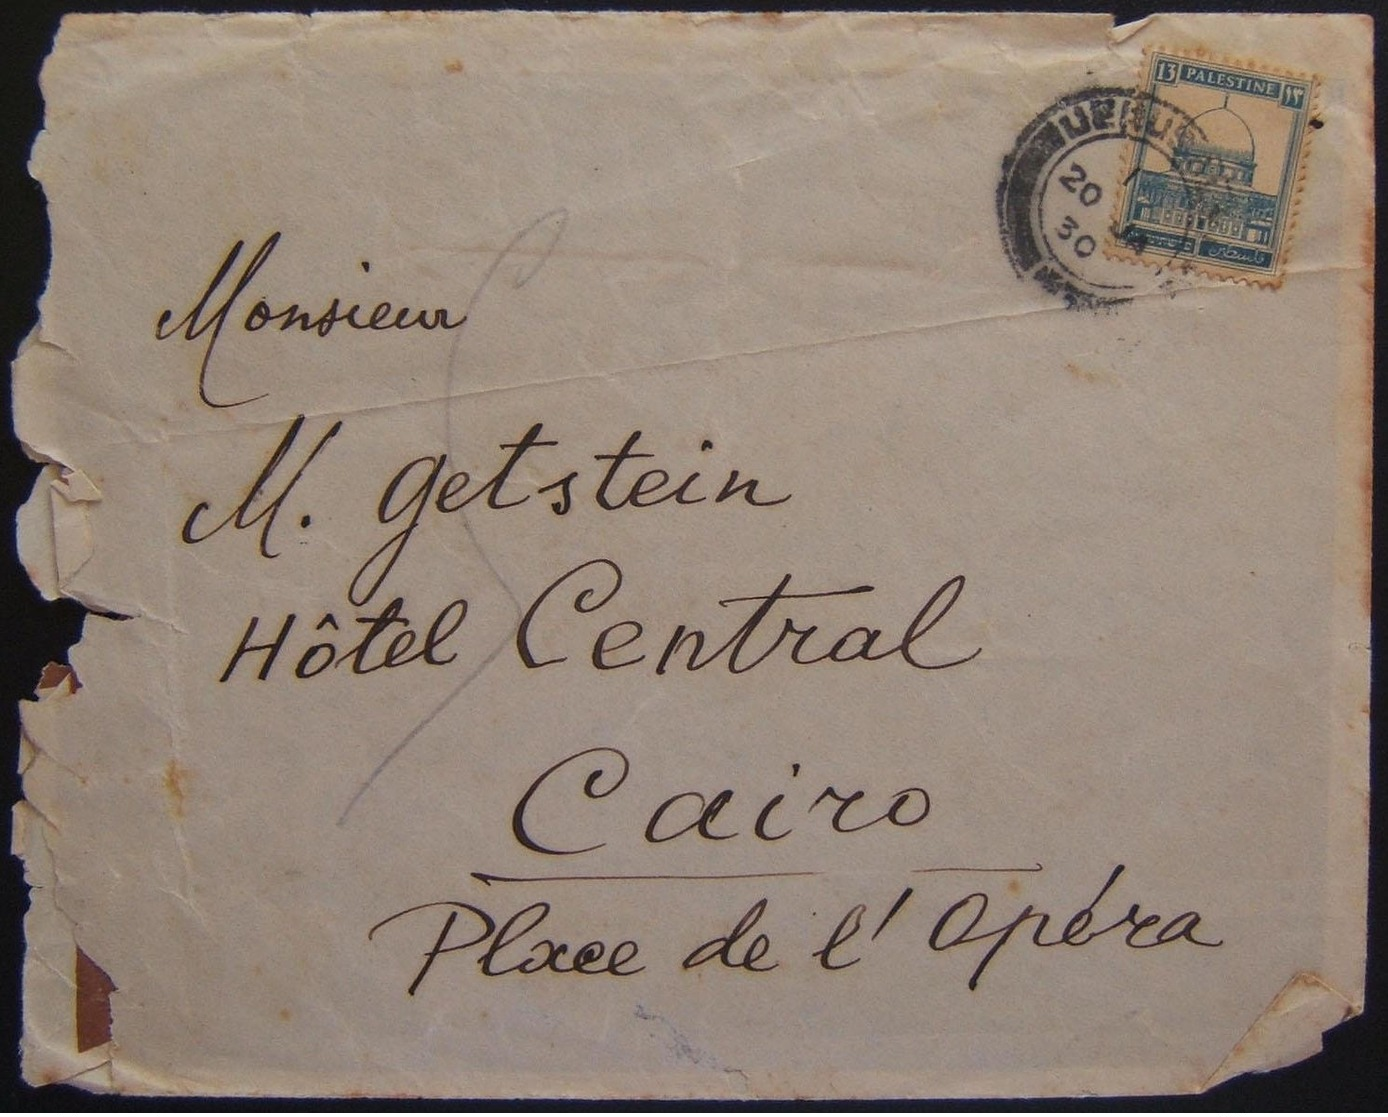 13 PALESTINE ١٣
فلسطين
JERUS
20 JA
30
Monsieur
M. Getstein
Hôtel Central
Cairo
Place de l'Opéra